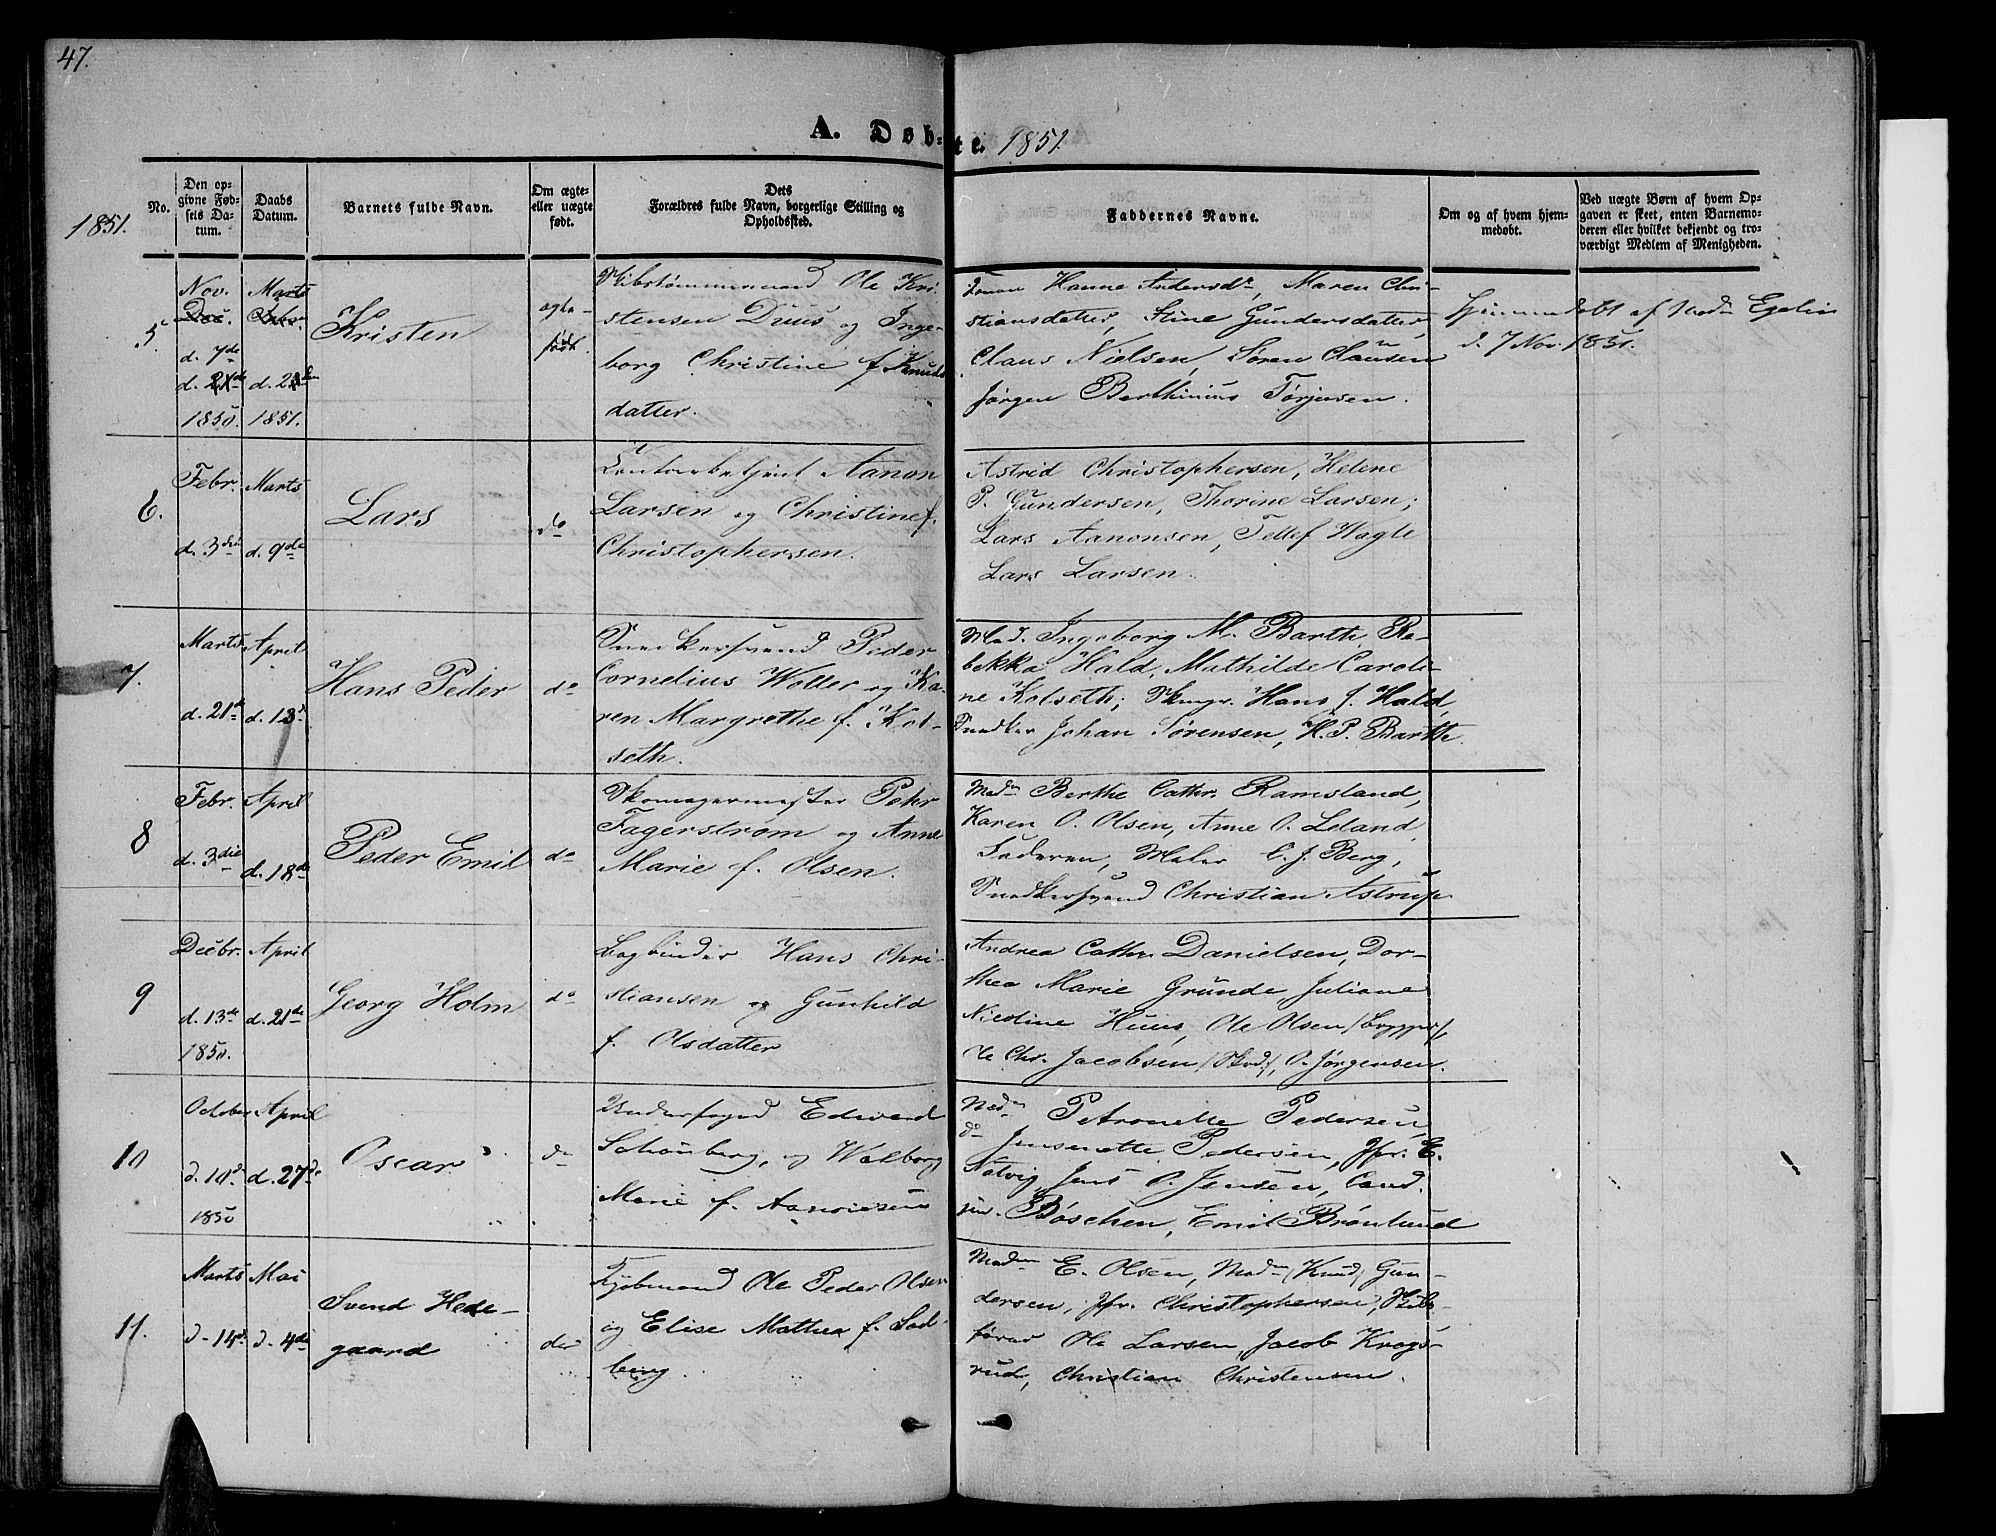 47.
A. Døb-te. 1851.
1851.
No.
Den op-
givne Fød-
sels Da-
tum.
Daabs
Datum.
Barnets fulde Navn.
Om ægte-
eller uægte
født.
Dets
Forældres fulde Navn, borgerlige Stilling og
Opholdssted.
Faddernes Navne.
Om og af hvem hjem-
medøbt.
Ved uægte Børn af hvem Op-
gaven er skeet, enten Barnemo-
deren eller hvilket bekjendt og tro-
værdigt Medlem af Menigheden.
5
Nov.
Dec.
d. 7de
d. 21de
1850.
Marts
d. 28
1851.
Kristen
ægte-
født.
Skibstømmermand Ole Kri-
stensen Duus og Inge-
borg Christine f. Knuds
datter.
Konen Hanne Andersdr, Maren Chri-
stiansdatter, Stine Gundersdatter,
Claus Nielsen, Søren Clausen
Jørgen Berthinius Torjusen.
Hjemmedøbt af Mad Egelin
d. 7 Nov. 1851.
6.
Febr.
d. 3die
Marts
d. 9de
Lars
do
Aanon
Larsen og Christine f.
Christophersen.
Astrid Christophersen, Helene
P. Gundersen, Thorine Larsen;
Lars Aanonsen, Tellef Wagle
Lars Larsen.
7.
Marts
d. 21de
April
d. 13
Hans Peder
do
Snedkersvend Peder
Cornelius Woller og Ka-
ren Margrethe f. Kol-
seth.
Mad. Ingeborg M. Barth Re-
bekka Hald, Mathilde Caroli-
ne Kolseth; Skmgr. Hans J. Hald,
Snedker Johan Sørensen, H. P. Barth.
8
Febr.
d. 3die
April
d. 18de
Peder Emil
do
Skomagermester Pehr
Fagerstrøm og Anne
Marie f. Olsen.
Madn Berthe Cathr. Ramsland,
Karen O. Olsen, Anne O. Leland,
Faderen, Maler C. J. Berg,
Snedkersvend Christian Astrup
9
Decbr.
d. 13de
1850.
April
d. 21de
Georg Holm
do
Bogbinder Hans Chri-
stiansen og Gunhild
f. Olsdatter
Andrea Cathr. Danielsen, Dor-
thea Marie Grunde, Juliane
Nicoline Huus, Ole Olsen /Brygger/,
Ole Chr. Jacobsen /Skrd/, O. Jørgensen.
10
October
d. 10d
1850
April
d. 27de
Oscar
do
Underfoged Edward
Schønberg, og Walborg
Marie f. Aanonsen
Madn Petronelle Pedersen,
do Jensenette Pedersen, Jfr. E.
Natvig, Jens O. Jensen, Cand.
jur. Bøschen, Emil Brønlund
11.
Marts
d. 14d.
Mai
d. 4de
Svend Hede-
gaard
do
Kjøbmand Ole Peder Olsen
og Elise Mathea f. Sol-
berg.
Madm E. Olsen, Madm /Knud/ Gun-
dersen, Jfr. Christophersen, Skibs-
fører Ole Larsen, Jacob Krogs-
rud, Christian Christensen.